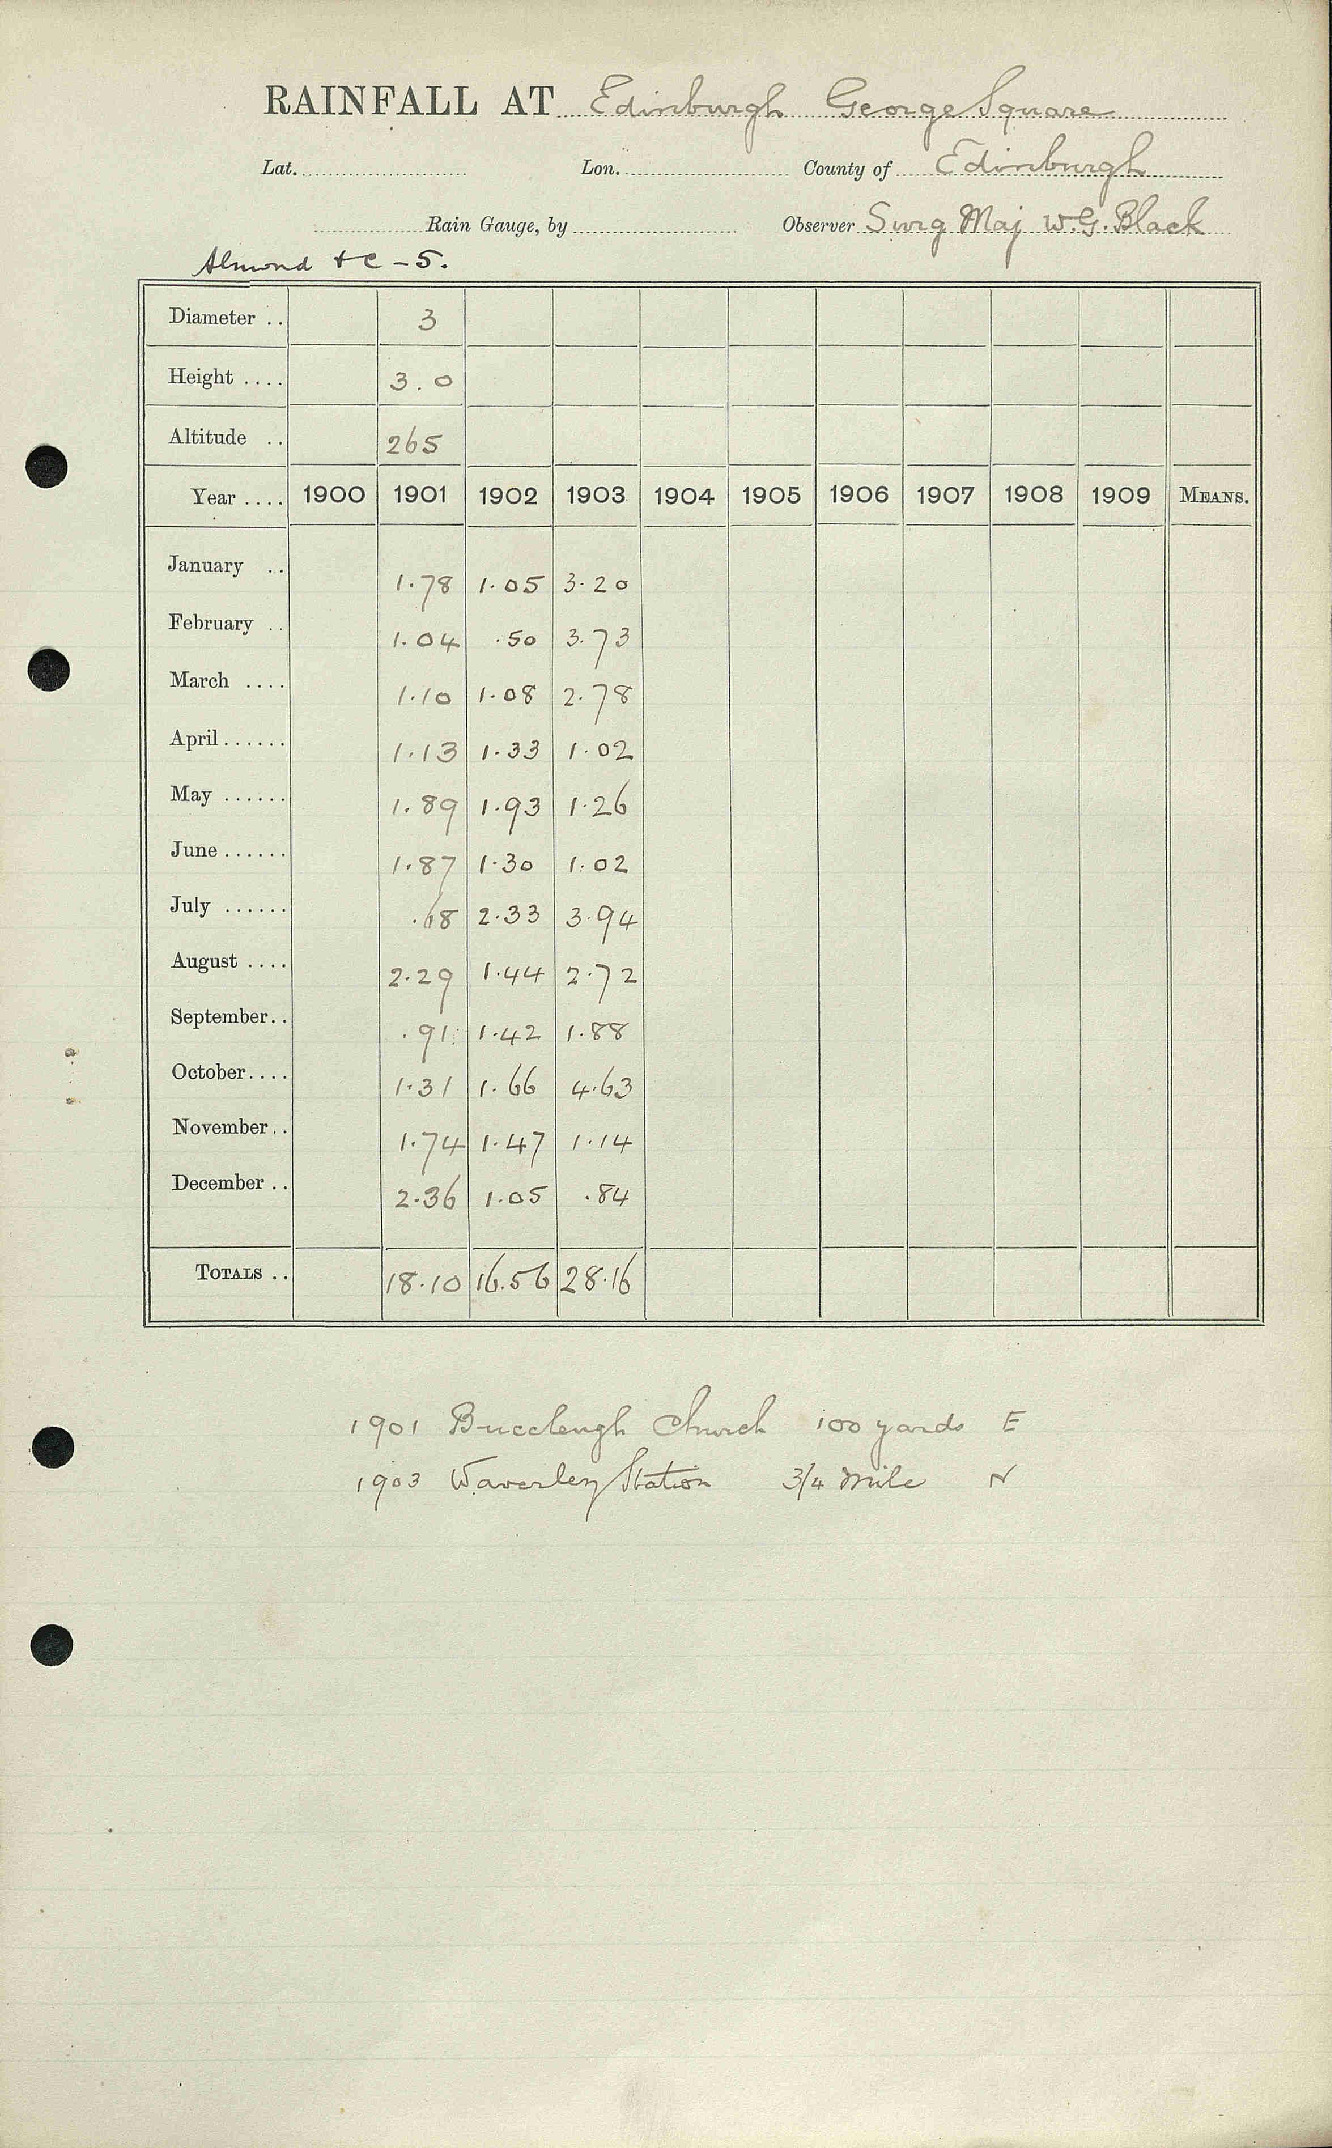 RAINFALL AT Edinburgh George Square
Lat. Lon. County of Edinburgh
Rain Gauge, by Observer Surg Maj W.G. Black
Almond & C - 5.
Diameter .. 3
Height .... 3.0
Altitude .. 265
Year .... 1900 1901 1902 1903 1904 1905 1906 1907 1908 1909 MEANS.
January .. 1.78 1.05 3.20
February .. 1.04 .50 3.73
March .... 1.10 1.08 2.78
April...... 1.13 1.33 1.02
May ...... 1.89 1.93 1.26
June ...... 1.87 1.30 1.02
July ...... .68 2.33 3.94
August .... 2.29 1.44 2.72
September.. .91 1.42 1.88
October.... 1.31 1.66 4.63
November.. 1.74 1.47 1.14
December .. 2.36 1.05 .84
TOTALS .. 18.10 16.56 28.16
1901 Buccleugh Church 100 yards E
1903 Waverley Station 3/4 Mile N